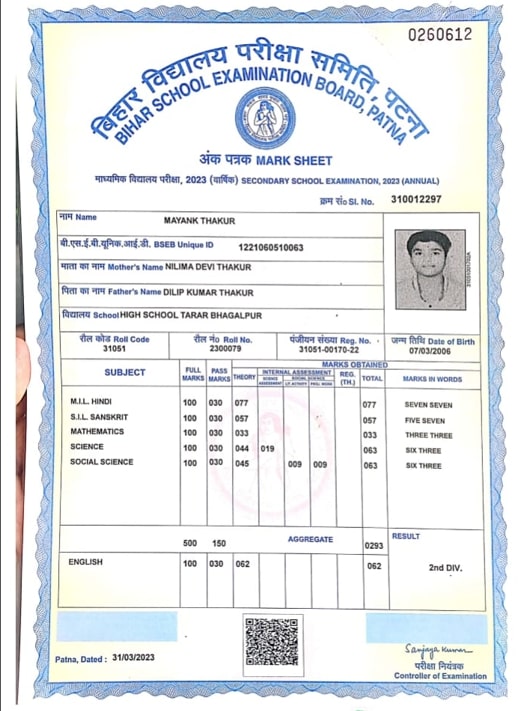 0260612
बिहार विद्यालय परीक्षा समिति, पटना
BIHAR SCHOOL EXAMINATION BOARD, PATNA
अंक पत्रक MARK SHEET
माध्यमिक विद्यालय परीक्षा, 2023 (वार्षिक) SECONDARY SCHOOL EXAMINATION, 2023 (ANNUAL)
क्रम सं० Sl. No. 310012297
नाम Name MAYANK THAKUR
बी.एस.ई.बी.यूनिक.आई.डी. BSEB Unique ID 1221060510063
माता का नाम Mother's Name NILIMA DEVI THAKUR
पिता का नाम Father's Name DILIP KUMAR THAKUR
विद्यालय School HIGH SCHOOL TARAR BHAGALPUR
रौल कोड Roll Code रौल नं० Roll No. पंजीयन संख्या Reg. No. जन्म तिथि Date of Birth
31051 2300079 31051-00170-22 07/03/2006
MARKS OBTAINED
SUBJECT FULL MARKS PASS MARKS THEORY INTERNAL ASSESSMENT REG. (TH.) TOTAL MARKS IN WORDS
SCIENCE ASSESSMENT SOCIAL SCIENCE LIT. ACTIVITY PROJ. WORK
M.I.L. HINDI 100 030 077 077 SEVEN SEVEN
S.I.L. SANSKRIT 100 030 057 057 FIVE SEVEN
MATHEMATICS 100 030 033 033 THREE THREE
SCIENCE 100 030 044 019 063 SIX THREE
SOCIAL SCIENCE 100 030 045 009 009 063 SIX THREE
500 150 AGGREGATE 0293 RESULT
ENGLISH 100 030 062 062 2nd DIV.
Sanjaya Kumar
Patna, Dated : 31/03/2023
परीक्षा नियंत्रक
Controller of Examination